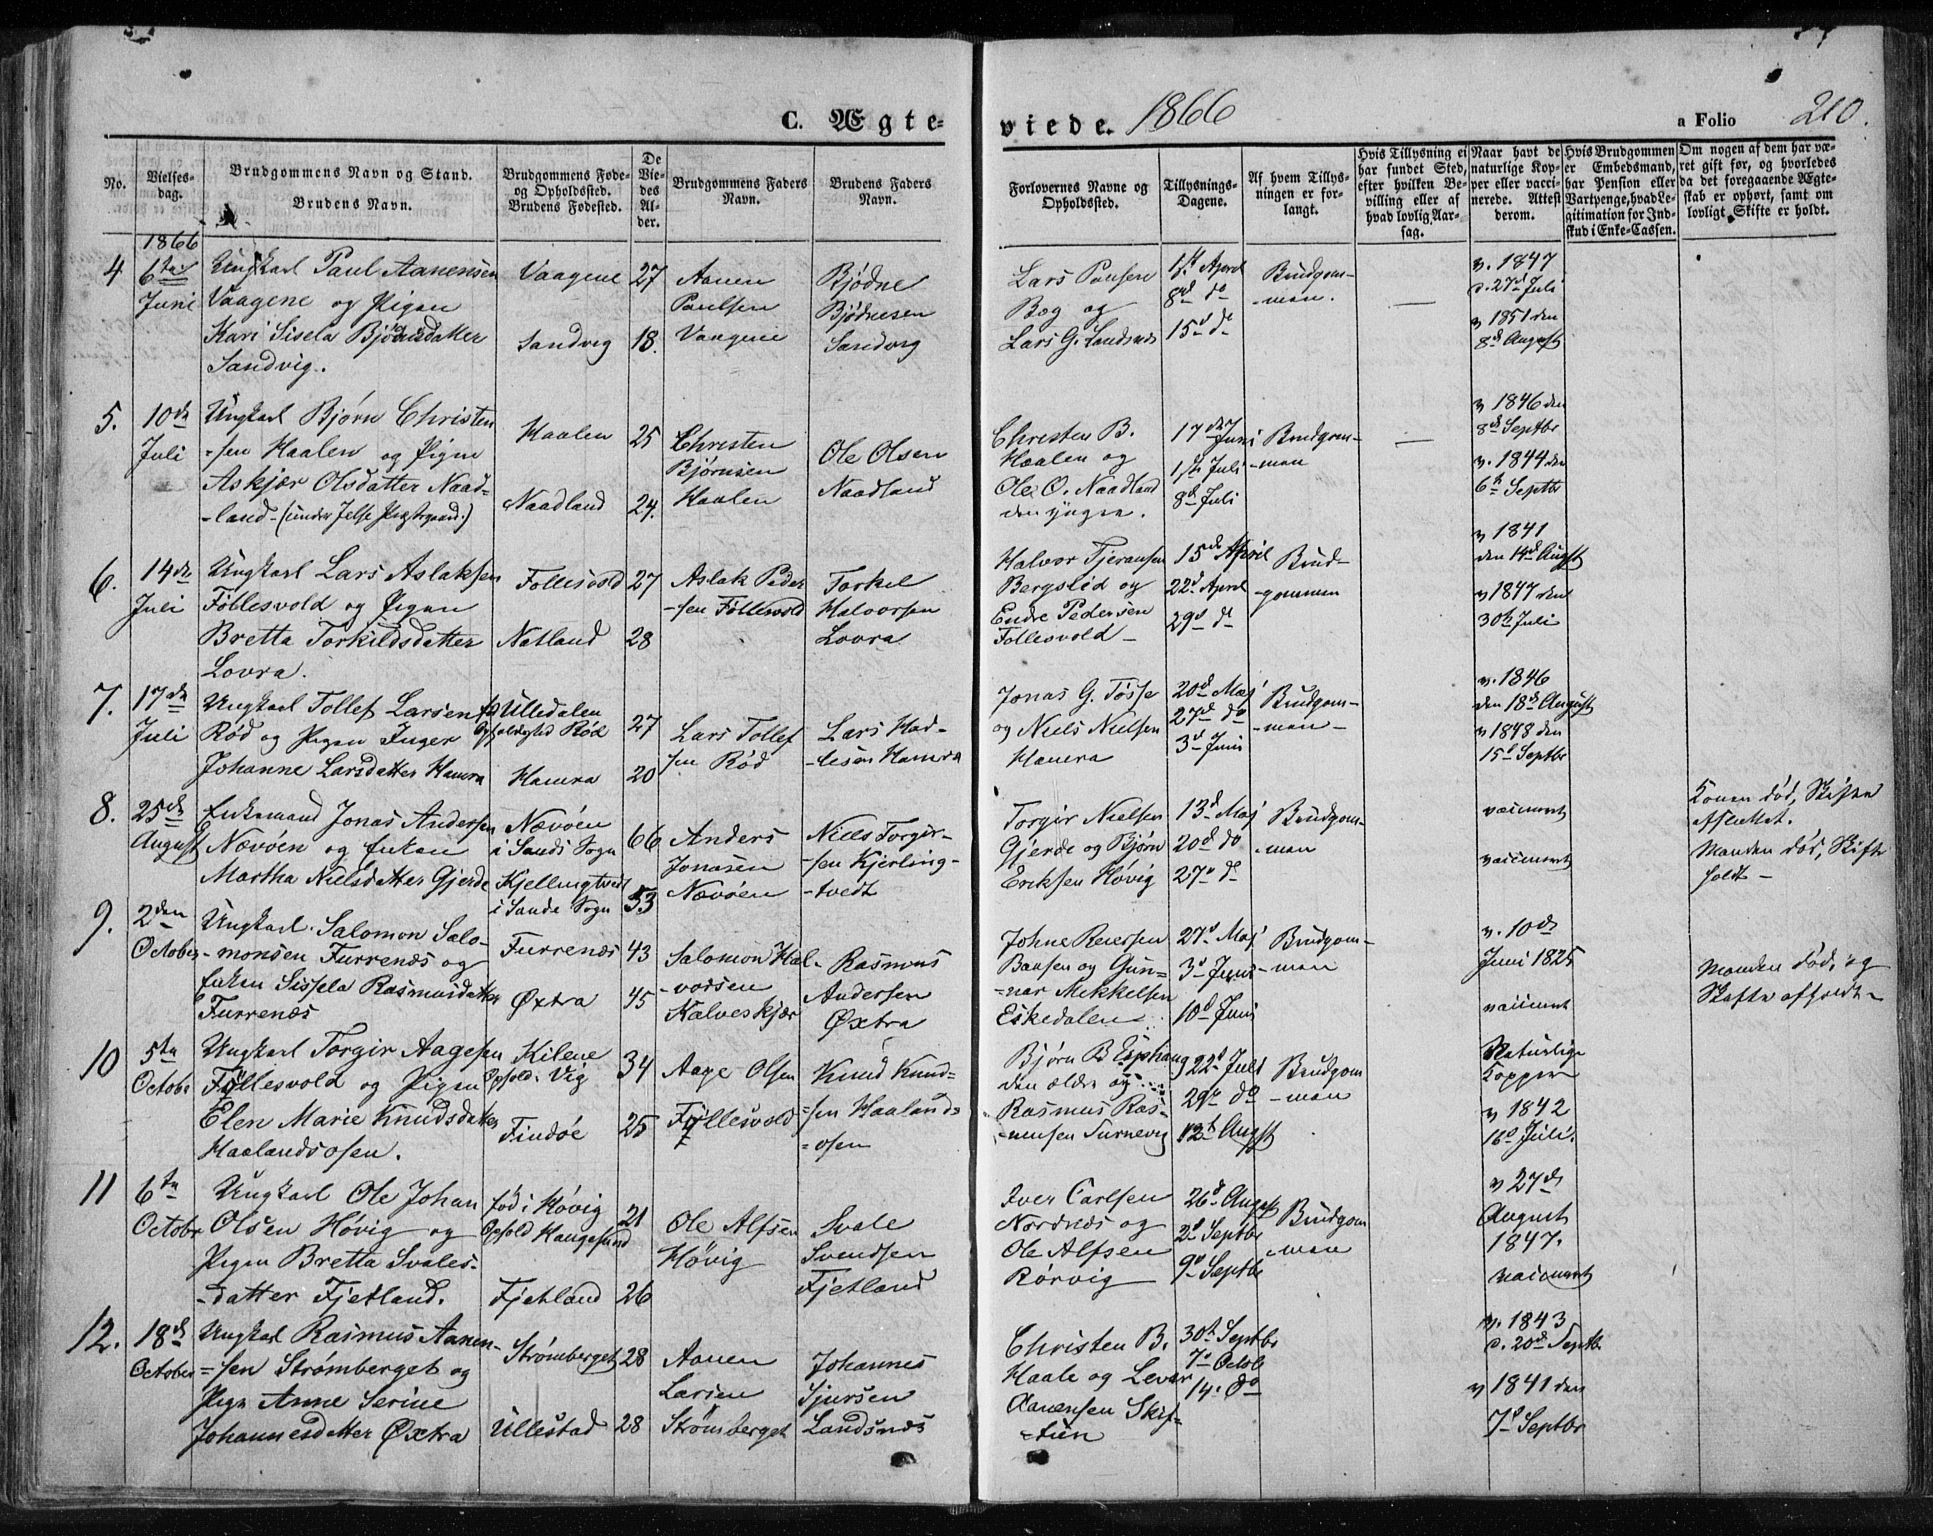 C. Ægte-
viede. 1866
a Folio 210.
No.
Vielses-
dag.
Brudgommens Navn og Stand.
Brudens Navn.
Brudgommens Føde-
og Opholdssted.
Brudens Fødested.
De
Vie-
des
Al-
der.
Brudgommens Faders
Navn.
Brudens Faders
Navn.
Forlovernes Navne og
Opholdssted.
Tillysnings-
Dagene.
Af hvem Tillys-
ningen er for-
langt.
Hvis Tillysning ei
har fundet Sted,
efter hvilken Be-
villing eller af
hvad lovlig Aar-
sag.
Naar havt de
naturlige Kop-
per eller vacci-
nerede. Attest
derom.
Hvis Brudgommen
er Embedsmand,
har Pension eller
Vartpenge, hvad Le-
gitimation for Ind-
skud i Enke-Cassen.
Om nogen af dem har væ-
ret gift før, og hvorledes
da det foregaaende Ægte-
skab er ophørt, samt om
lovligt Skifte er holdt.
1866
4
6te
Juni
Ungkarl Paul Aanensen
Vaagene og Pigen
Kari Sisela Bjødnesdatter
Sandvig.
Vaagene
Sandvig
27
18.
Aanen
Paulsen
Vaagene
Bjødne
Bjødnesen
Sandvig
Lars Paulsen
Bog og
Lars G. Landsnes
1st April
8de do
15de do
Brudgom-
men.
—
v. 1847
d. 27de Juli
v 1851 den
8de August
5.
10de
Juli
Ungkarl Bjørn Christen
-sen Haalen og Pigen
Askjær Olsdatter Naad-
-land - (under Jelse Præstegaard.)
Haalen
Naadland
25
24.
Christen
Bjørnsen
Haalen
Ole Olsen
Naadland
Christen B.
Haalen og
Ole O. Naadland
den yngre.
17de Juni
1ste Juli
8de Juli
Brudgom-
-men
—
v 1846 den
8de Septbr
v. 1844 den
6te Septbr
6.
14de
Juli
Ungkarl Lars Aslaksen
Føllesvold og Pigen
Bretta Torkildsdatter
Lovra.
Follesvold
Natland
27
28
Aslak Peder
-sen Føllesvold
Torkel
Halvorsen
Lovra
Halvor Tjeransen
Bergslid og
Endre Pedersen
Follesvold -
15de April
22de April
29de do
Brud-
-gommen
v 1841
den 14de Augst
v 1847 den
30te Juli
7.
17de
Juli
Ungkarl Tollef Larsen
Rød og Pigen Inger
Johanne Larsdatter Hamra
Ulledalen
Opholdssted Rød
Hamra
27
20
Lars Tollef
sen Rød
Lars Had-
-lesen Hamra
Jonas G. Tøsse
og Niels Nielsen
Hamra
20de Maj
27de do
3de Juni
Brudgom-
-men -
v. 1846
den 18de August
v 1848 den
15de Septbr
8.
25de
August
Enkemand Jonas Andersen
Nævøen og Enken
Martha Nielsdatter Gjerde
Nævøen
i Sands Sogn
Kjellingtvedt
i Sande Sogn
66
53
Anders
Jonasen
Nævøen
Niels Torgir-
-sen Kjerling-
-tvedt
Torgir Nielsen
Gjerde og Bjørn
Eriksen Høvig
13de Maj
20de do
27de do
Brudgom-
-men
vaccineret
vaccineret
Konen død, Skifte
afsluttet.
Manden død, Skifte
holdt -
9.
2den
October
Ungkarl Salomon Salo-
-monsen Furrenæs og
Enken Sissela Rasmusdatter
Furrenæs
Furrenæs
Øxtra
43
45
Salomon Hal-
-vorsen
Kalveskjær
Rasmus
Andersen
Øxtra
Johne Reiersen
Baasen og Gun-
-nar Mikkelsen
Eskedalen
27de Maj
3de Juni
10de Juni
Brudgom-
-men
v. 10de
Juni 1825
vaccineret
Manden død, og
Skifte afholdt -
10
5te
Octobr
Ungkarl Torgir Aagesen
Føllesvold og Pigen
Elen Marie Knudsdatter
Haalandsosen.
Kilene
Ophold. Vig
Findøe
34
25
Aage Olsen
Føllesvold
Knud Knud-
-sen Haalands
-osen
Bjørn B Espehaug
den ældre og
Rasmus Ras-
-mussen Turnevig
22de Juli
29de do
12te Augst
Brudgom
-men
Naturlige
Kopper
v 1842
16de Juli.
11
6te
Octobr
Ungkarl Ole Johan
Olsen Høvig og
Pigen Bretta Svales-
-datter Fjetland.
fød i Høvig
Ophold Haugesund
Fjetland
21
26
Ole Alfsen
Høvig
Svale
Svendsen
Fjetland
Iver Carlsen
Nordnæs og
Ole Alfsen
Rørvig
26de August
2de Septbr
9de Septbr
Brudgom
-men
v 27de
August
1847.
vaccineret
12.
18de
October
Ungkarl Rasmus Aanen-
-sen Strømberget og
Pigen Anne Serine
Johannesdatter Øxtra
Strømberget
Ullestad
28
28
Aanen
Larsen
Strømberget
Johannes
Sjursen
Landsnæs
Christen B.
Haale og Lever
Aanensen Skif-
-tun
30te Septbr
7de Octob
14. do
v. 1843
d. 20de Septbr
v 1841 den
7de Septbr